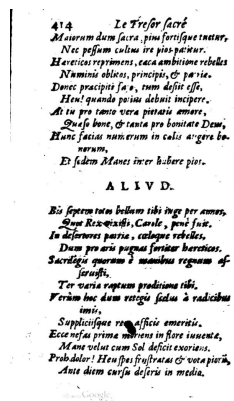 414 Le Tresor sacré
Maiorum dum sacra, pius fortisque tuetur,
Nec pessum cultus ire pios patitur.
Hæreticos reprimens, cæca ambitione rebelles
Numinis oblitos, principis, & patriæ.
Donec præcipiti fato, tum desiit esse,
Heu! quando potius debuit incipere.
At tu pro tanto vera pietatis amore,
Quæso bone, & tanta pro bonitate Deus,
Hunc facias numerum in cœlis augere bo-
norum,
Et sedem Manes inter habere pios.
ALIVD.
Bis septem totos bellum tibi inge per annos,
Quot Rex vixisti, Carole, penè fuit.
In desertores patriæ, cœloque rebelles,
Dum pro aris pugnas fortiter hæreticos.
Sacrilegis quorum è manibus regnum as-
seruisti.
Ter varia raptum proditione tibi.
Verùm hoc dum retegis scelus à radicibus
imis,
Suppliciisque afficis emeritis.
Ecce nefas prima moriens in flore iuuentæ,
Mane velut cum Sol deficit exoriens.
Proh dolor! Heu spes frustratas & vota piorū,
Ante diem cursu deseris in medio.